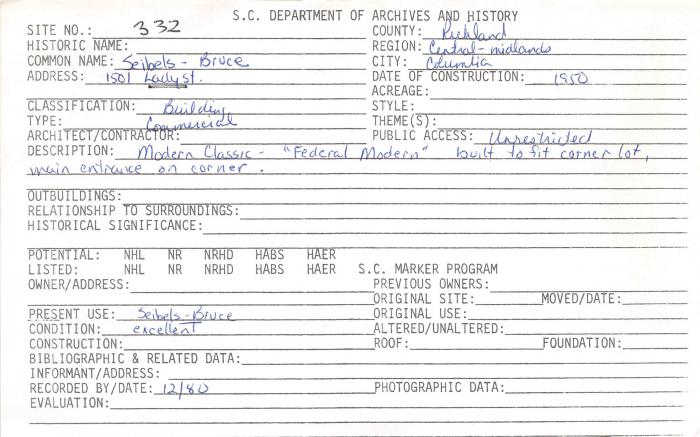 S.C. DEPARTMENT OF ARCHIVES AND HISTORY
SITE NO.: 332 COUNTY: Richland
HISTORIC NAME: REGION: Central-midlands
COMMON NAME: Seibels-Bruce CITY: Columbia
ADDRESS: 1501 Lady st. DATE OF CONSTRUCTION: 1950
ACREAGE:
CLASSIFICATION: Building STYLE:
TYPE: Commercial THEME(S):
ARCHITECT/CONTRACTOR: PUBLIC ACCESS: Unrestricted
DESCRIPTION: Modern Classic - "Federal Modern" built to fit corner lot,
main entrance on corner.
OUTBUILDINGS:
RELATIONSHIP TO SURROUNDINGS:
HISTORICAL SIGNIFICANCE:
POTENTIAL: NHL NR NRHD HABS HAER
LISTED: NHL NR NRHD HABS HAER S.C. MARKER PROGRAM
OWNER/ADDRESS: PREVIOUS OWNERS:
ORIGINAL SITE: MOVED/DATE:
PRESENT USE: Seibels-Bruce ORIGINAL USE:
CONDITION: excellent ALTERED/UNALTERED:
CONSTRUCTION: ROOF: FOUNDATION:
BIBLIOGRAPHIC & RELATED DATA:
INFORMANT/ADDRESS:
RECORDED BY/DATE: 12/80 PHOTOGRAPHIC DATA:
EVALUATION: